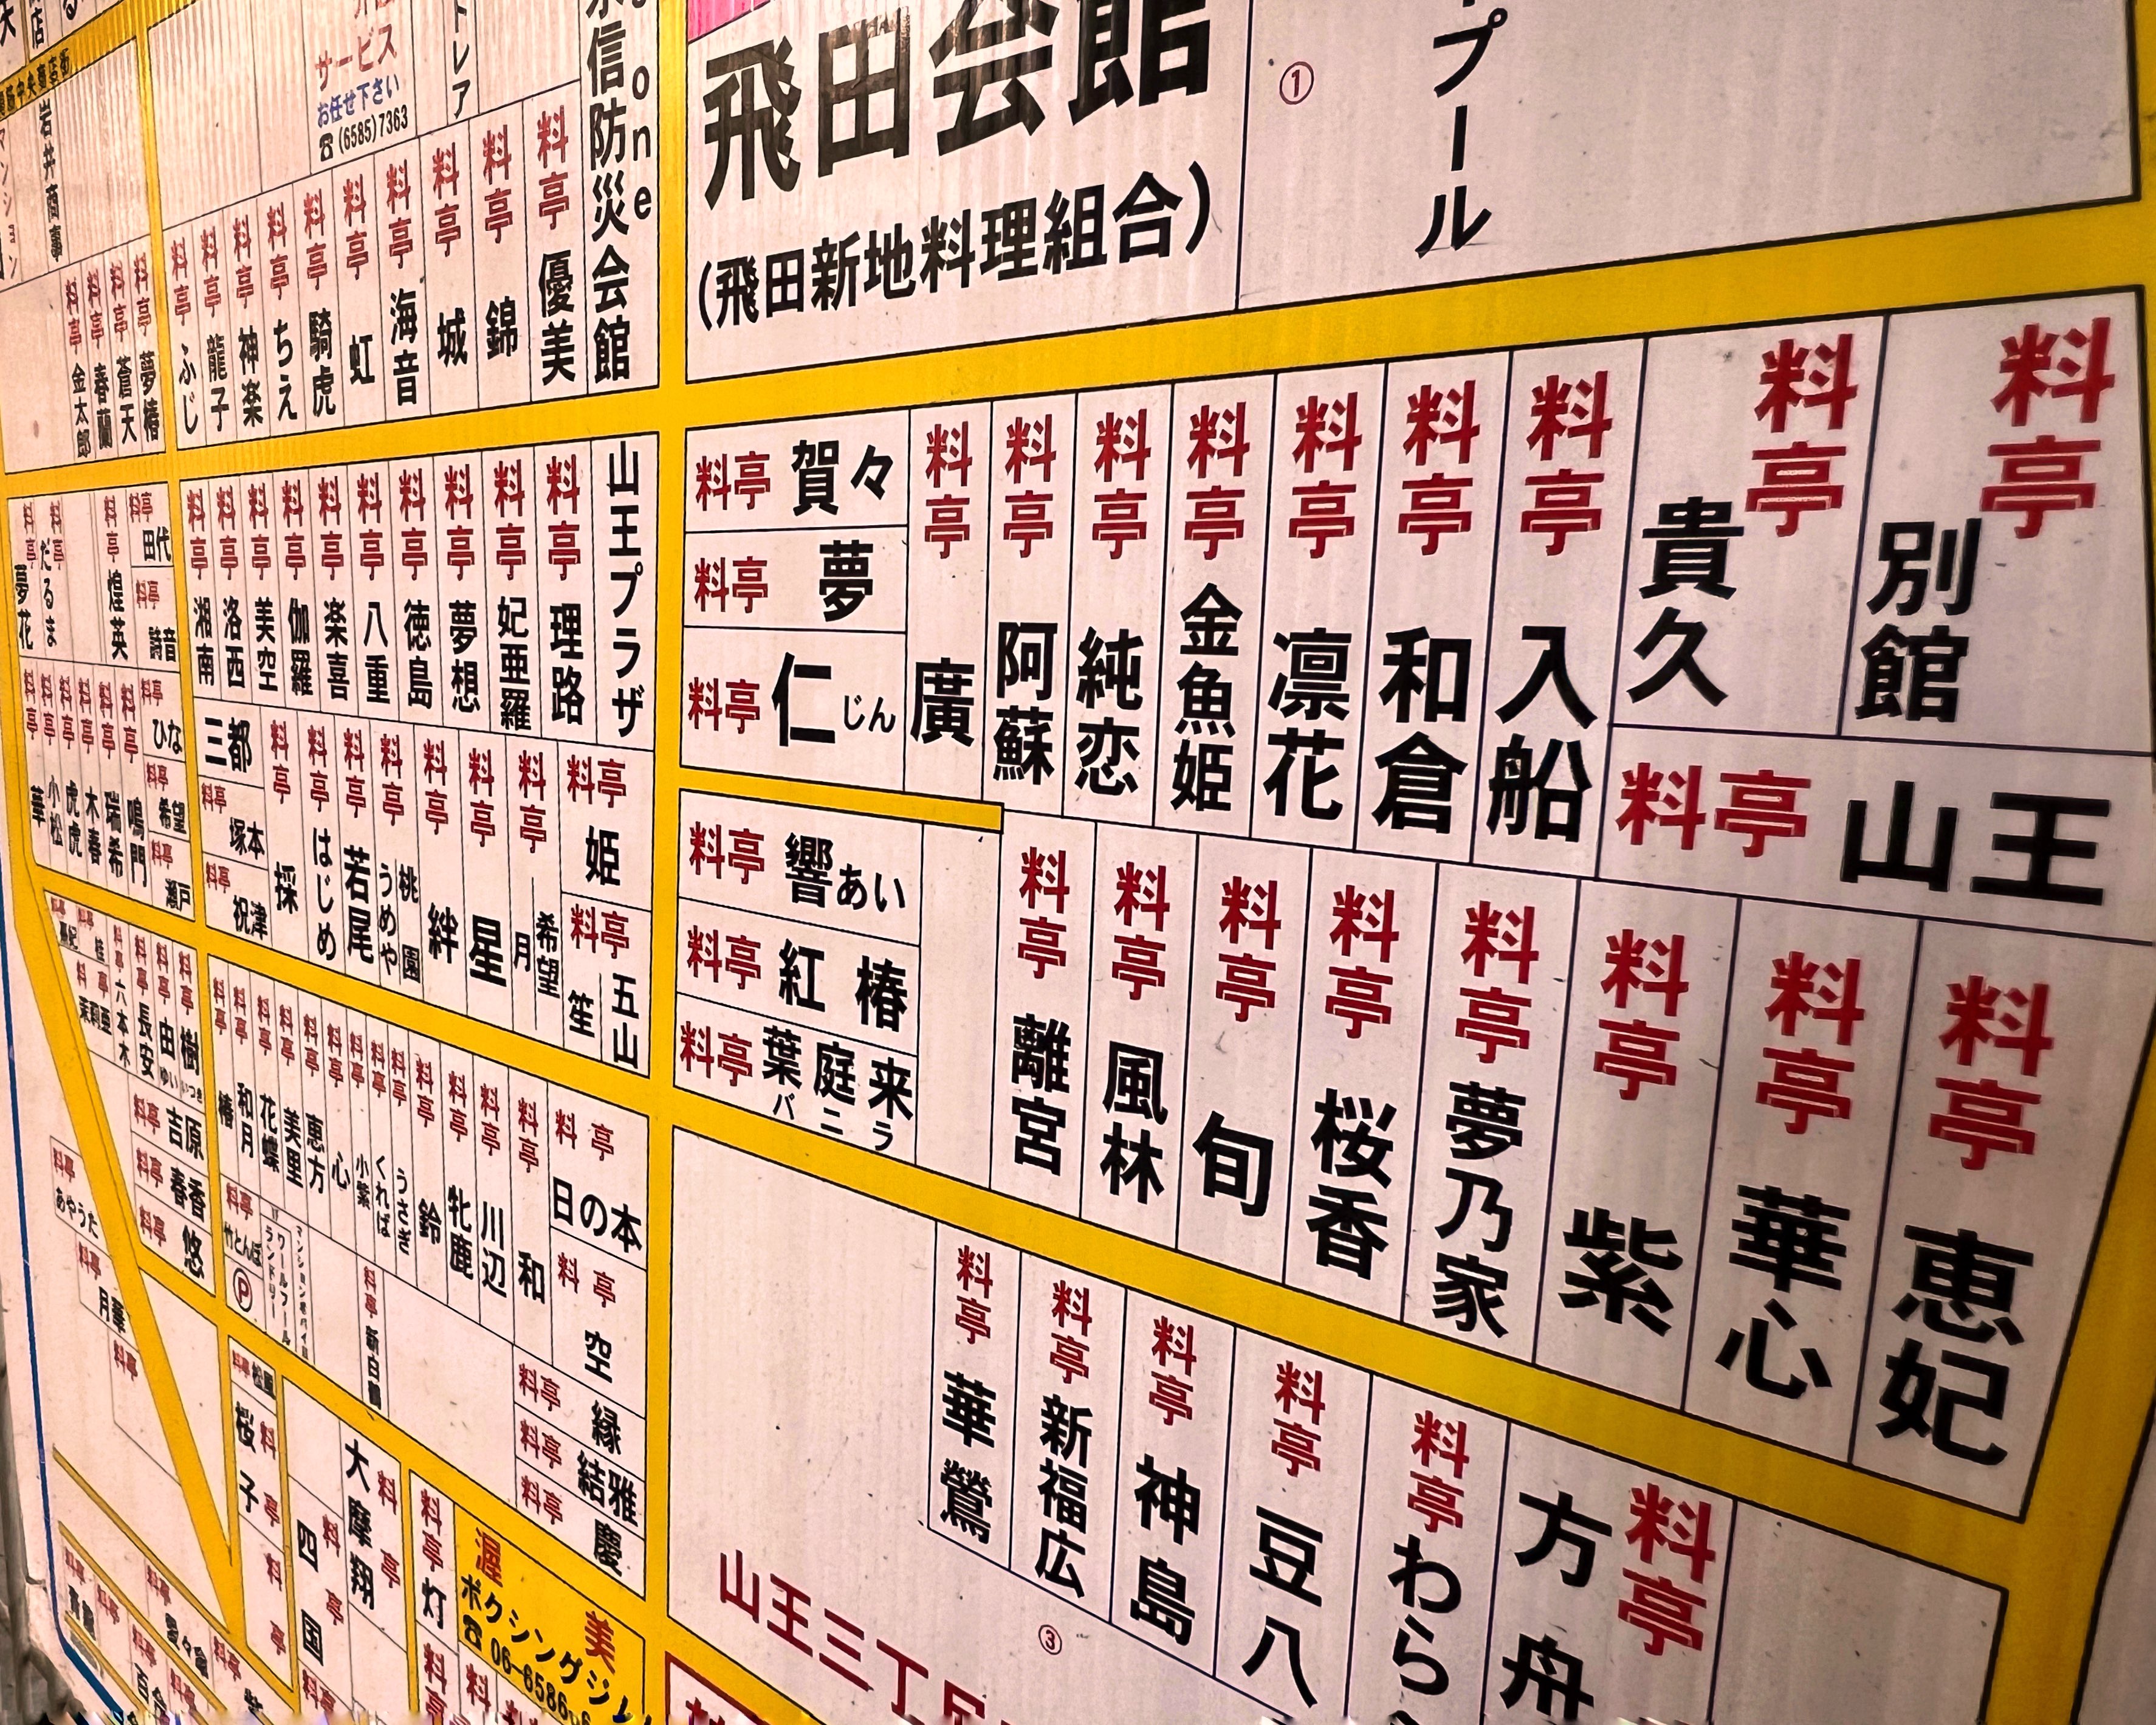 サービス
お任せ下さい
☎(6585)7363
トレア
one
信防災会館
岩井商事
料亭 優美
料亭 錦
料亭 城
料亭 海音
料亭 虹
料亭 騎虎
料亭 ちえ
料亭 神楽
料亭 龍子
料亭 ふじ
料亭 夢椿
料亭 蒼天
料亭 春蘭
料亭 金太郎
飛田会館
(飛田新地料理組合)
①
プール
料亭 別館
料亭 貴久
料亭 山王
料亭 入船
料亭 和倉
料亭 凛花
料亭 金魚姫
料亭 純恋
料亭 阿蘇
料亭 廣
料亭 賀々
料亭 夢
料亭 仁じん
料亭 恵妃
料亭 華心
料亭 紫
料亭 夢乃家
料亭 桜香
料亭 旬
料亭 風林
料亭 離宮
料亭 響あい
料亭 紅椿
料亭 葉庭来
バニラ
山王プラザ
料亭 理路
料亭 妃亜羅
料亭 夢想
料亭 徳島
料亭 八重
料亭 楽喜
料亭 伽羅
料亭 美空
料亭 洛西
料亭 湘南
料亭 姫
料亭 五山
笙
料亭 希望
月
料亭 星
料亭 絆
料亭 桃園
うめや
料亭 若尾
料亭 はじめ
料亭 採
三都
料亭 塚本
料亭 祝津
料亭 田代
料亭 詩音
料亭 煌英
料亭 だるま
料亭 夢花
料亭 ひな
料亭 希望
料亭 瀬戸
料亭 鳴門
料亭 瑞希
料亭 木春
料亭 虎虎
料亭 小松
料亭 華
料亭 樹
いつき
料亭 由
ゆい
料亭 長安
料亭 六本木
料亭 茉莉亜
料亭 桂
料亭 吉原
料亭 春香
料亭 悠
料亭 日の本
料亭 空
料亭 縁
料亭 結雅
料亭 慶
料亭 和
料亭 川辺
料亭 牡鹿
料亭 鈴
料亭 うさぎ
料亭 くれば
料亭 小紫
料亭 心
料亭 恵方
料亭 美里
料亭 花蝶
料亭 和月
料亭 椿
料亭 竹とんぼ
Ⓟ
ワールプール
ランドリー
料亭 新白鶴
料亭 あやうた
料亭 月華
料亭
料亭 松風
料亭 桜子
料亭
料亭 四国
料亭 大摩翔
料亭 灯
渥美
ボクシングジム
☎06-6586
料亭 方舟
料亭 わら
料亭 豆八
料亭 神島
料亭 新福広
料亭 華鶯
③
山王三丁目